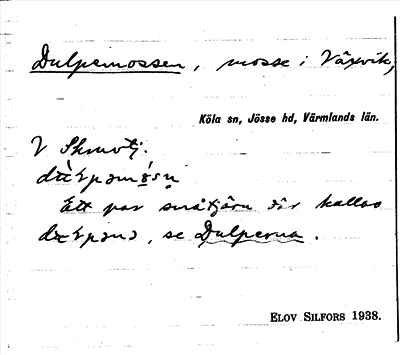 Dulpemossen, mosse i Växvik,
Köla sn, Jösse hd, Värmlands län.
V Skruvtj.
Ett par småtjärn där kallas
, se Dulperna.
ELOV SILFORS 1938.